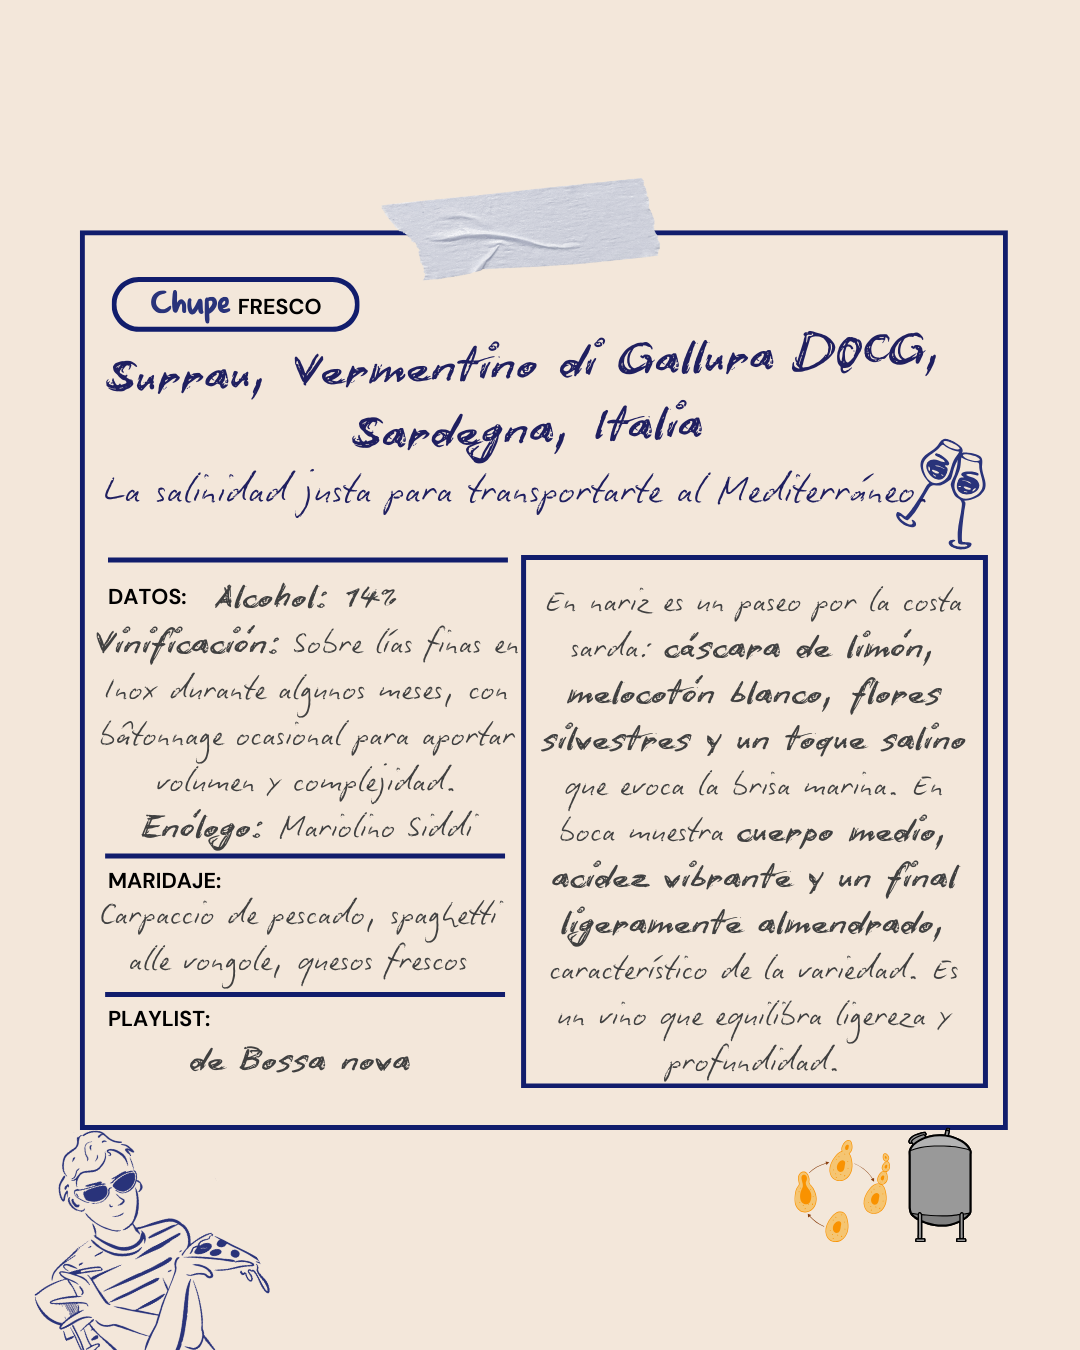 Chupe FRESCO
Surrau, Vermentino di Gallura DOCG,
Sardegna, Italia
La salinidad justa para transportarte al Mediterráneo.
DATOS: Alcohol: 14%
Vinificación: Sobre lías finas en
Inox durante algunos meses, con
bâtonnage ocasional para aportar
volumen y complejidad.
Enólogo: Mariolino Siddi
MARIDAJE:
Carpaccio de pescado, spaghetti
alle vongole, quesos frescos
PLAYLIST:
de Bossa nova
En nariz es un paseo por la costa
sarda: cáscara de limón,
melocotón blanco, flores
silvestres y un toque salino
que evoca la brisa marina. En
boca muestra cuerpo medio,
acidez vibrante y un final
ligeramente almendrado,
característico de la variedad. Es
un vino que equilibra ligereza y
profundidad.